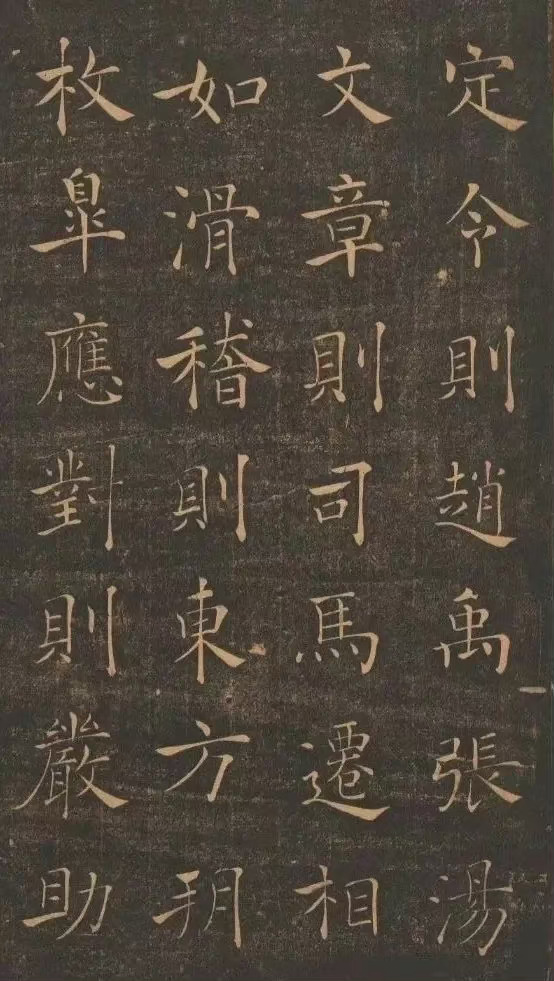 定令則趙禹張湯
文章則司馬遷相
如滑稽則東方朔
枚臯應對則嚴助